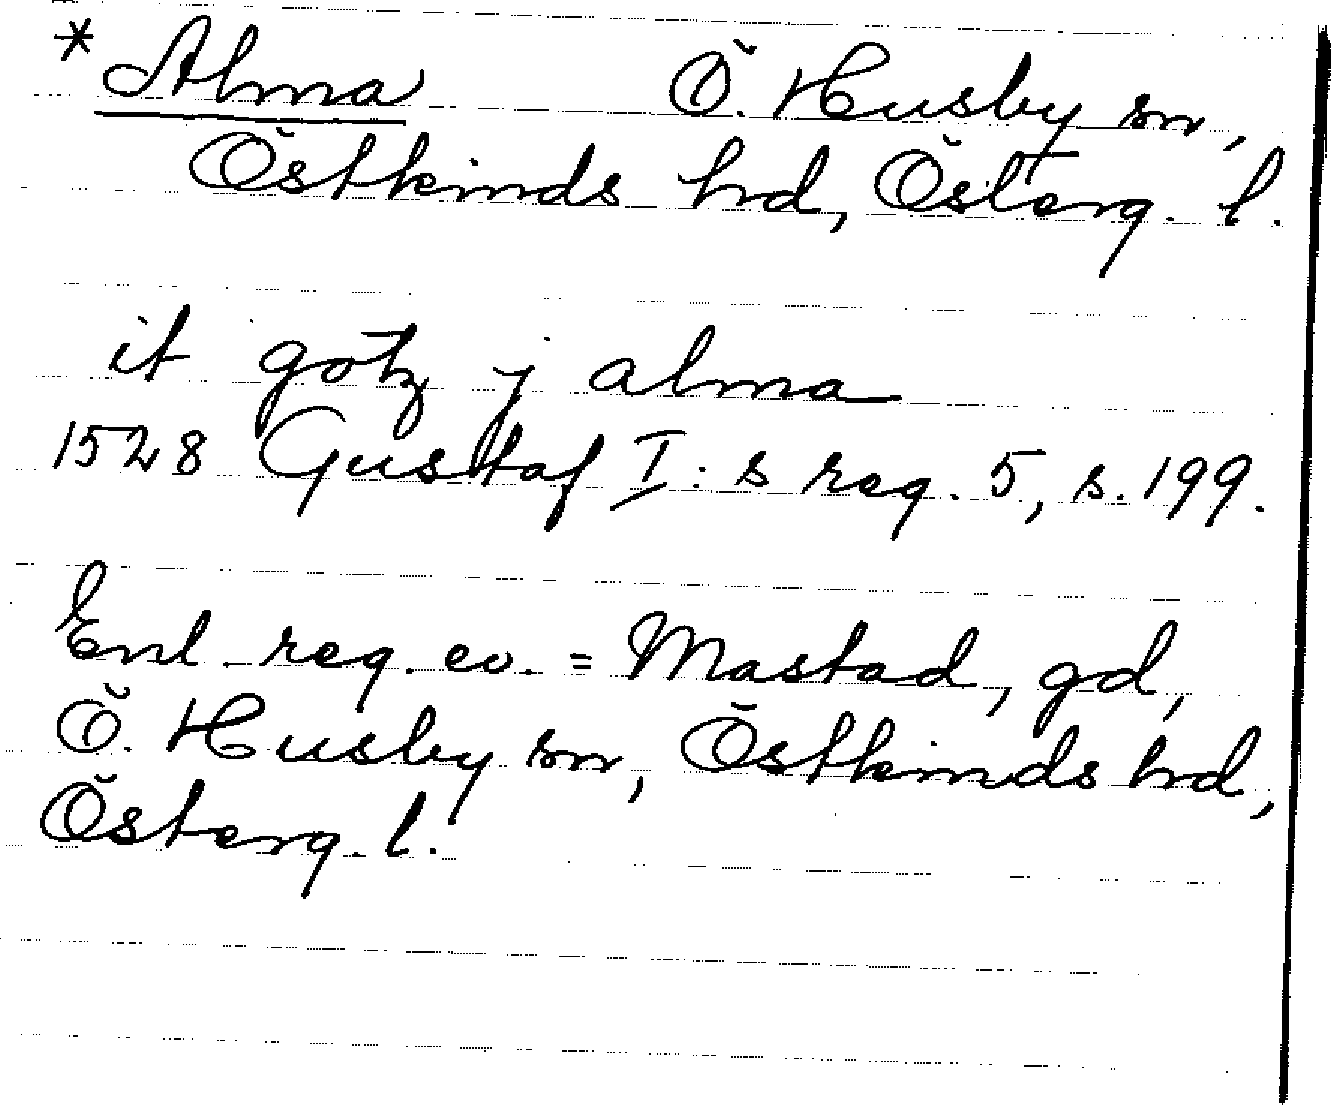 * Alma Ö. Husby sn,
Östkinds hd, Österg. l.
it götz j alma
1528 Gustaf I:s reg. 5, s. 199.
Enl. reg. ev. = Mastad, gd,
Ö. Husby sn, Östkinds hd,
Österg. l.